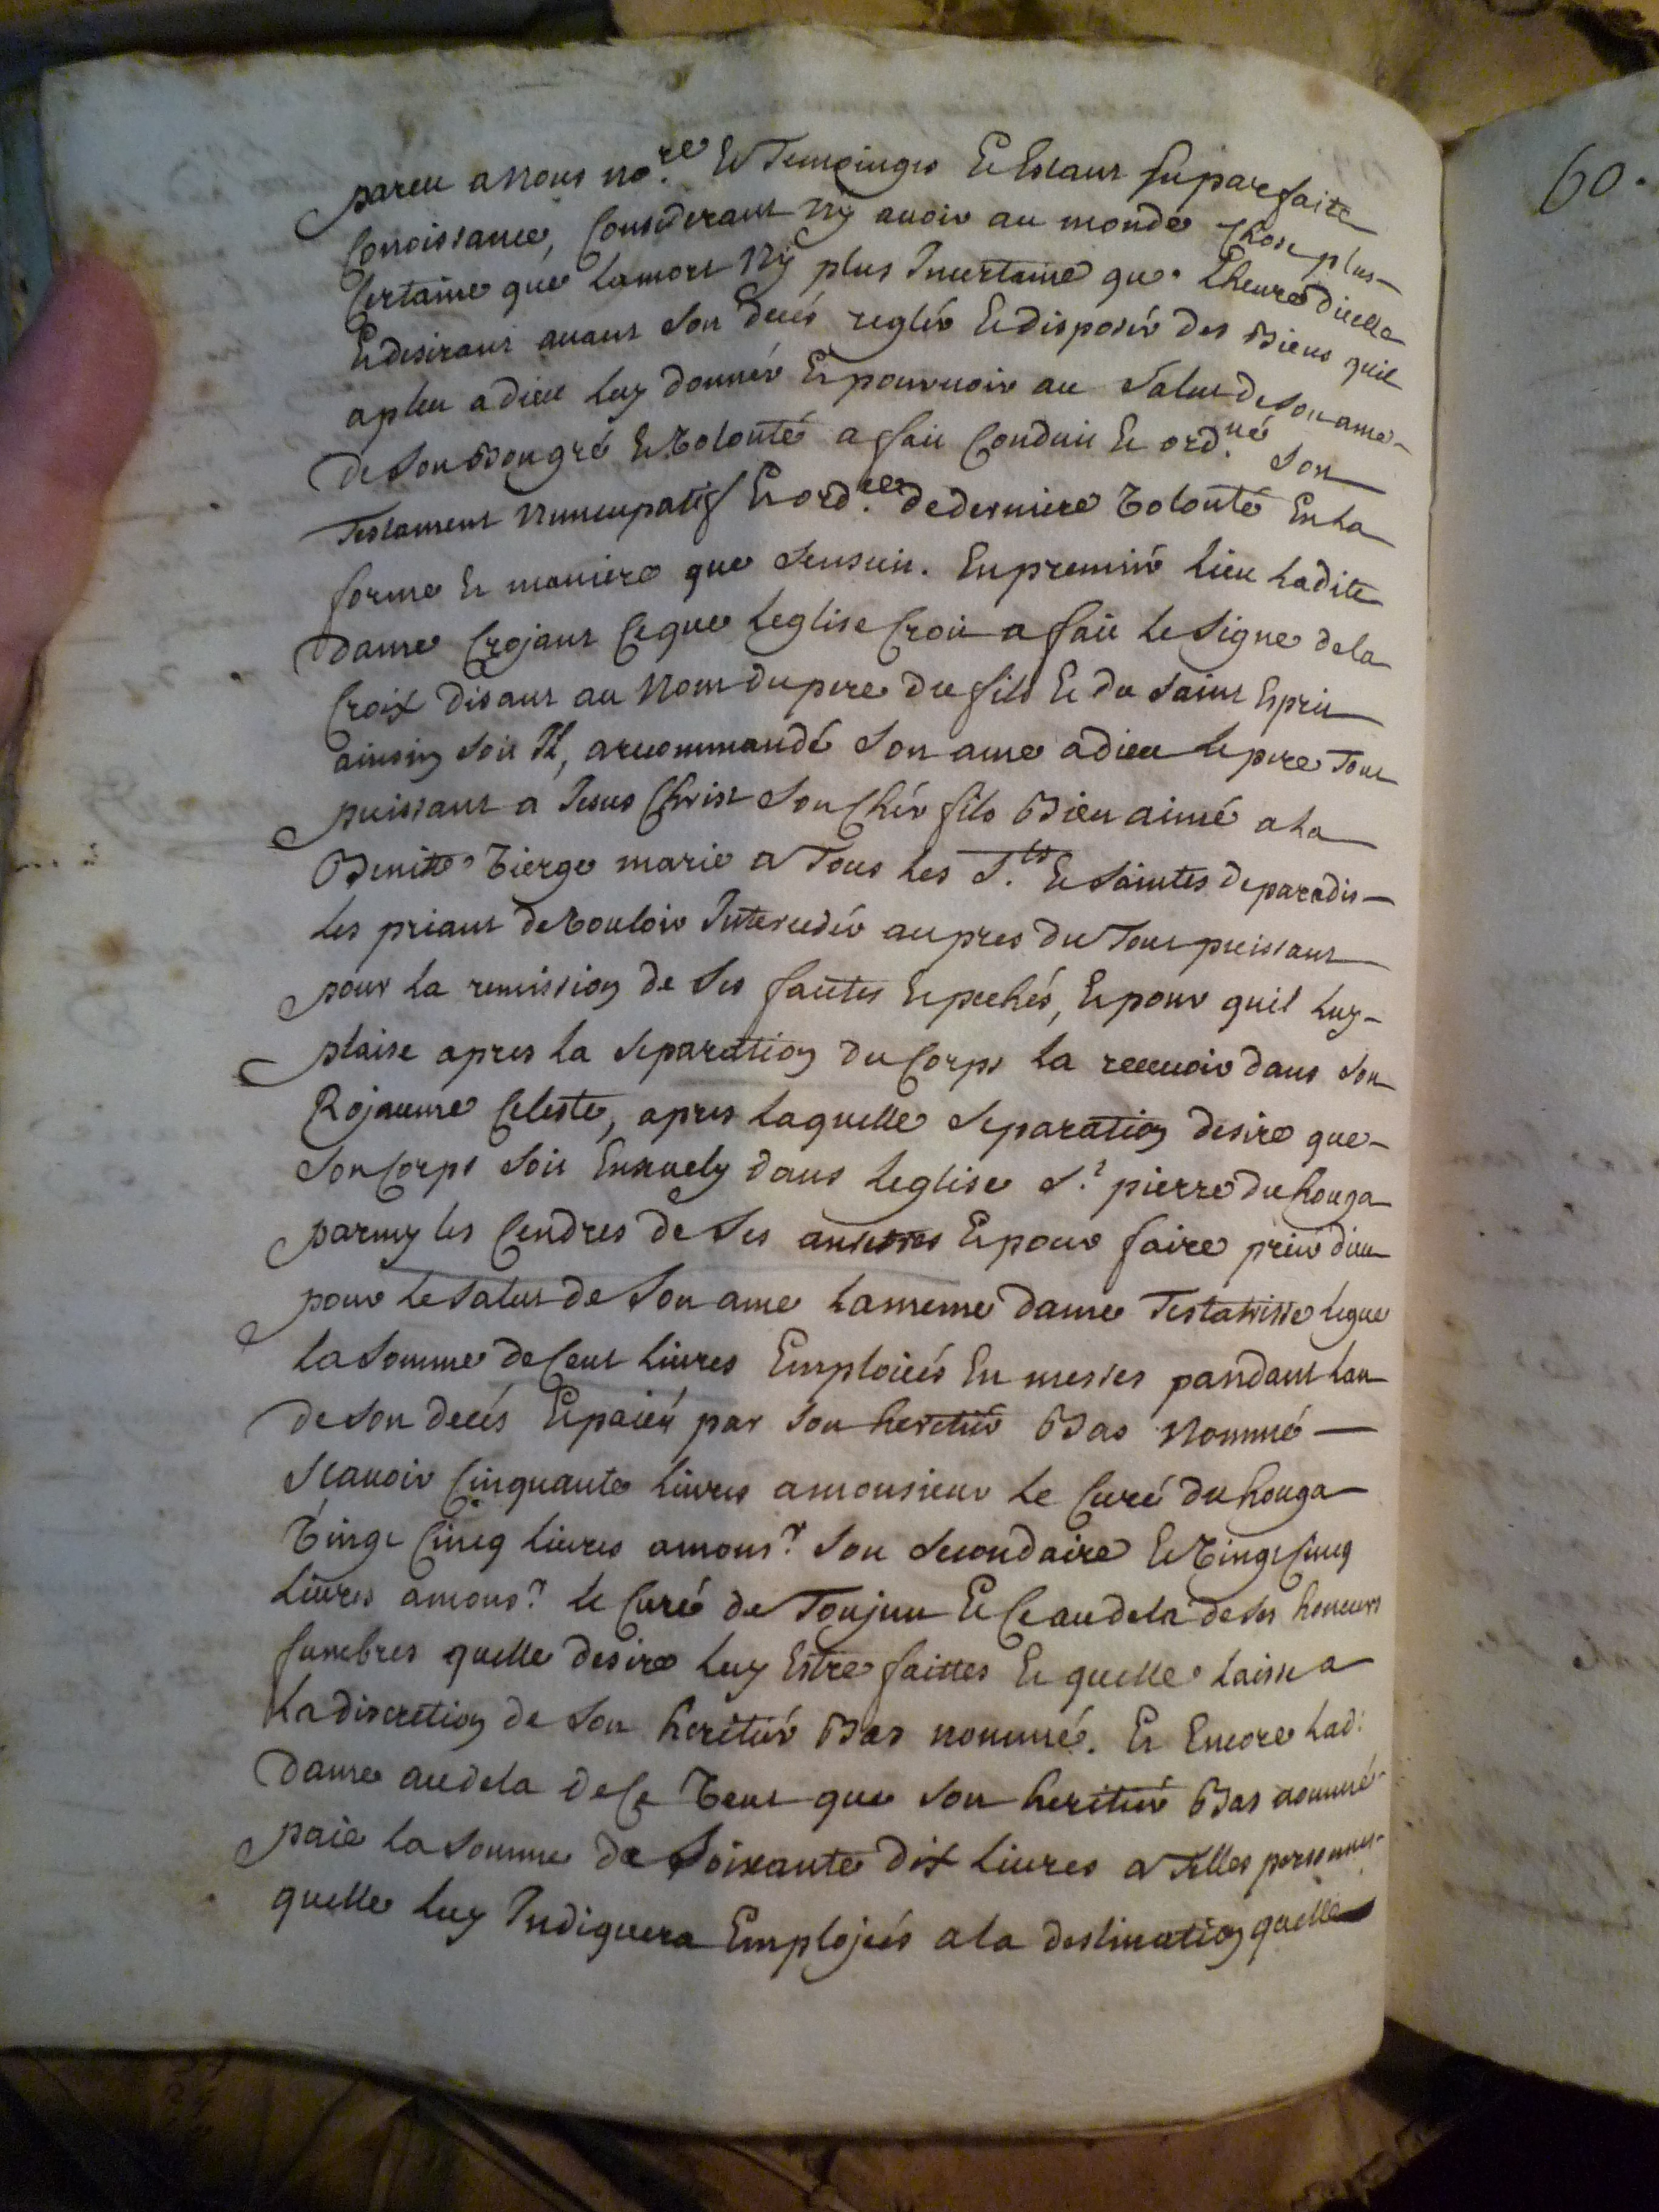 pareu a nous no.re Et Temoinges Et Estant En parfaite
Connoissance, Considerant Ny avoir au monde Chose plus
Certaine que Lamort Ny plus Incertaine que Lheure Dicelle
Et desirant avant Son decés reglér Et disposér Des Biens quil
a pleu a dieu Luy donnér Et pourvoir au Salut de Son ame
de Son Bon gré Et Volonté a fait Conduit Et ord.né Son
Testament Nuncupatif Et ord.ce de derniere Volonté En La
forme Et maniere que Sensuit. En premiér Lieu Ladite
Dame Crojant Ce que Leglise Croit a fait Le Signe de la
Croix disant au Nom du pere Du fils Et du Saint Esprit
ainsin Soit Il, a recommandé Son ame a dieu Le pere Tout
puissant a Jesus Christ Son Chér fils Bien aimé a La
Benitte Vierge marie a Tous Les S.ts Et Saintes de paradis
Les priant de Vouloir Intercedér aupres du Tout puissant
pour La remission de Ses fautes Et pechés, Et pour quil Luy
plaise apres La Separation du Corps La recevoir dans Son
Rojaume Celeste, apres Laquelle Separation desire que
Son Corps Soit Ensevely dans Leglise S.t pierre du houga
parmy les Cendres de Ses ancetres Et pour faire priér dieu
pour Le Salut de Son ame La meme dame Testatrisse Legue
La Somme de Cent Livres Emploiées En messes pandant Lan
de Son decés Et paiéé par Son heretiér Bas Nommé
Scavoir Cinquante Livres a monsieur Le Curé du houga
Vingt Cincq Livres a mons.r Son Secondaire Et Vingt Cincq
Livres a mons.r le Curé de Toujun Et Ce au dela de Ses honeurs
funebres quelle desire Luy Estre faittes Et quelle Laisse a
La discretion de Son heritiér Bas nommé. Et Encore Lad:
Dame au dela de Ce Veut que Son heritiér Bas nommé
paie La Somme de Soixante dix Livres a Telles personnes
quelle Luy Indiquera Emplojeés a la destination quelle
60.